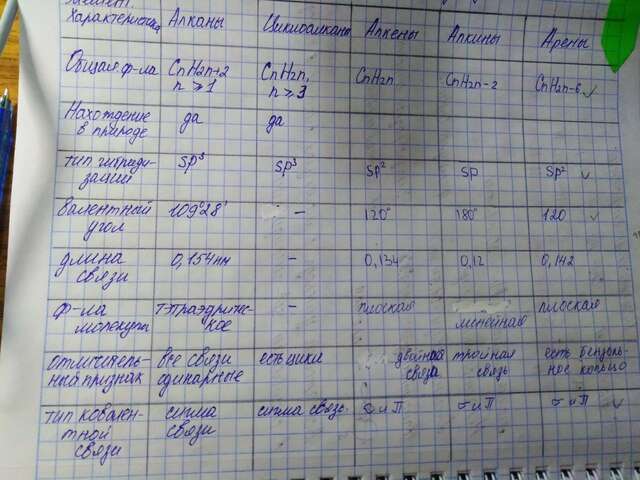 Характеристика Алканы Циклоалканы Алкены Алкины Арены
Общая ф-ла CnH2n+2 n ⩾ 1 CnH2n, n ⩾ 3 CnH2n CnH2n-2 CnH2n-6
Нахождение в природе да да
тип гибридизации sp³ sp³ sp² sp sp²
валентный угол 109°28' - 120° 180° 120
длина связи 0,154нм - 0,134 0,12 0,142
ф-ла молекулы тэтраэдрическое - плоская линейная плоская
отличительный признак все связи одинарные есть цикл двойная связь тройная связь есть бензольное кольцо
тип ковалентной связи сигма связи сигма связь σ и П σ и П σ и П